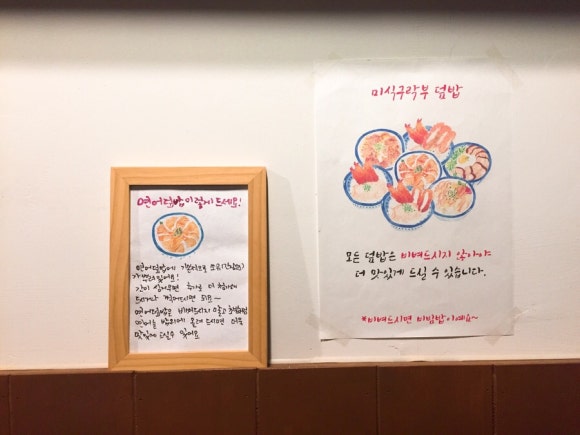 연어덮밥 이렇게 드세요!
연어덮밥에 기본적으로 쯔유(간장)가
되어요!
간이 싱거우면 추가로 더
드시거나 찍어드시면 되요~
연어덮밥은 비벼드시지 말고
연어를 밥위에 올려 드시면 더욱
맛있게 드실수 있어요
미식구락부 덮밥
모든 덮밥은 비벼드시지 않아야
더 맛있게 드실 수 있습니다.
*비벼드시면 비빔밥이예요~